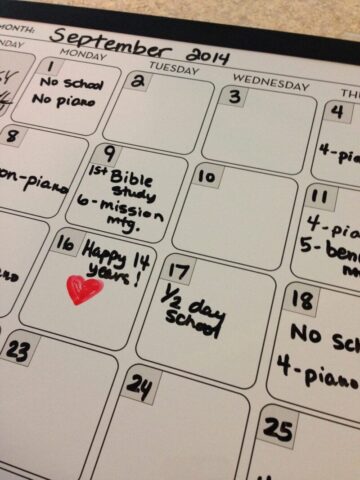 MONTH: September 2014
NDAY MONDAY TUESDAY WEDNESDAY THU
1
No school
No piano
2
3
4
4-pia
8
on-piano
9
1st Bible
study
6-mission
mtg.
10
11
4-pia
5-ben
16 Happy 14
years!
17
1/2 day
school
18
No sch
4-piano
23
24
25